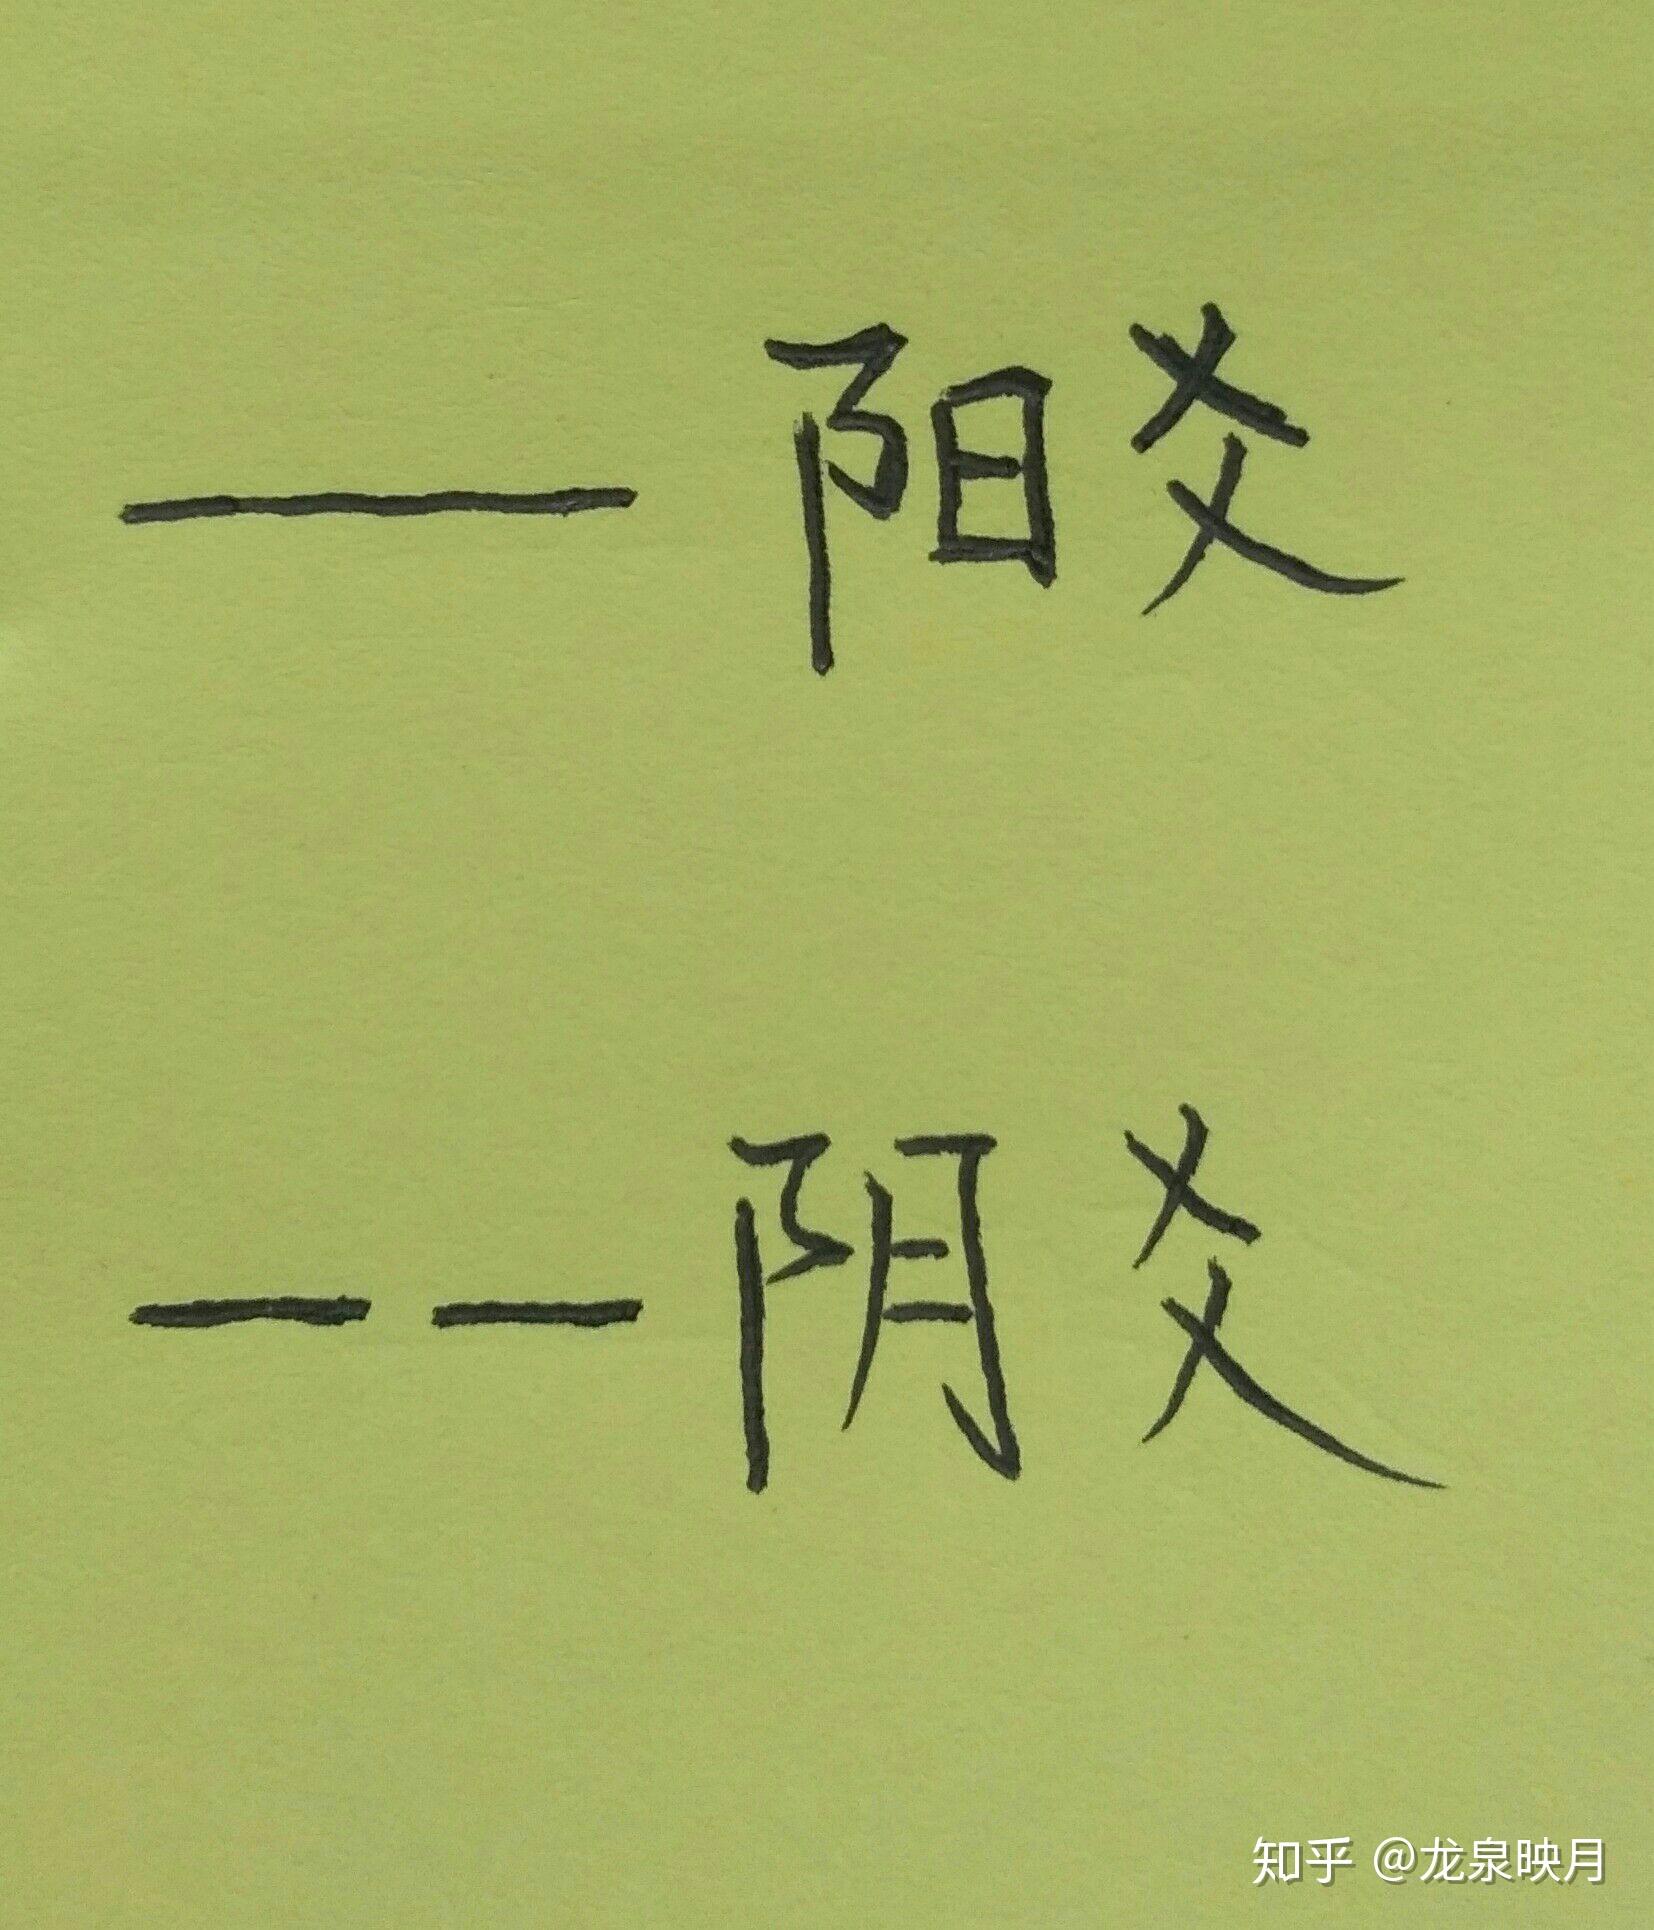 — 阳爻
-- 阴爻
知乎 @龙泉映月